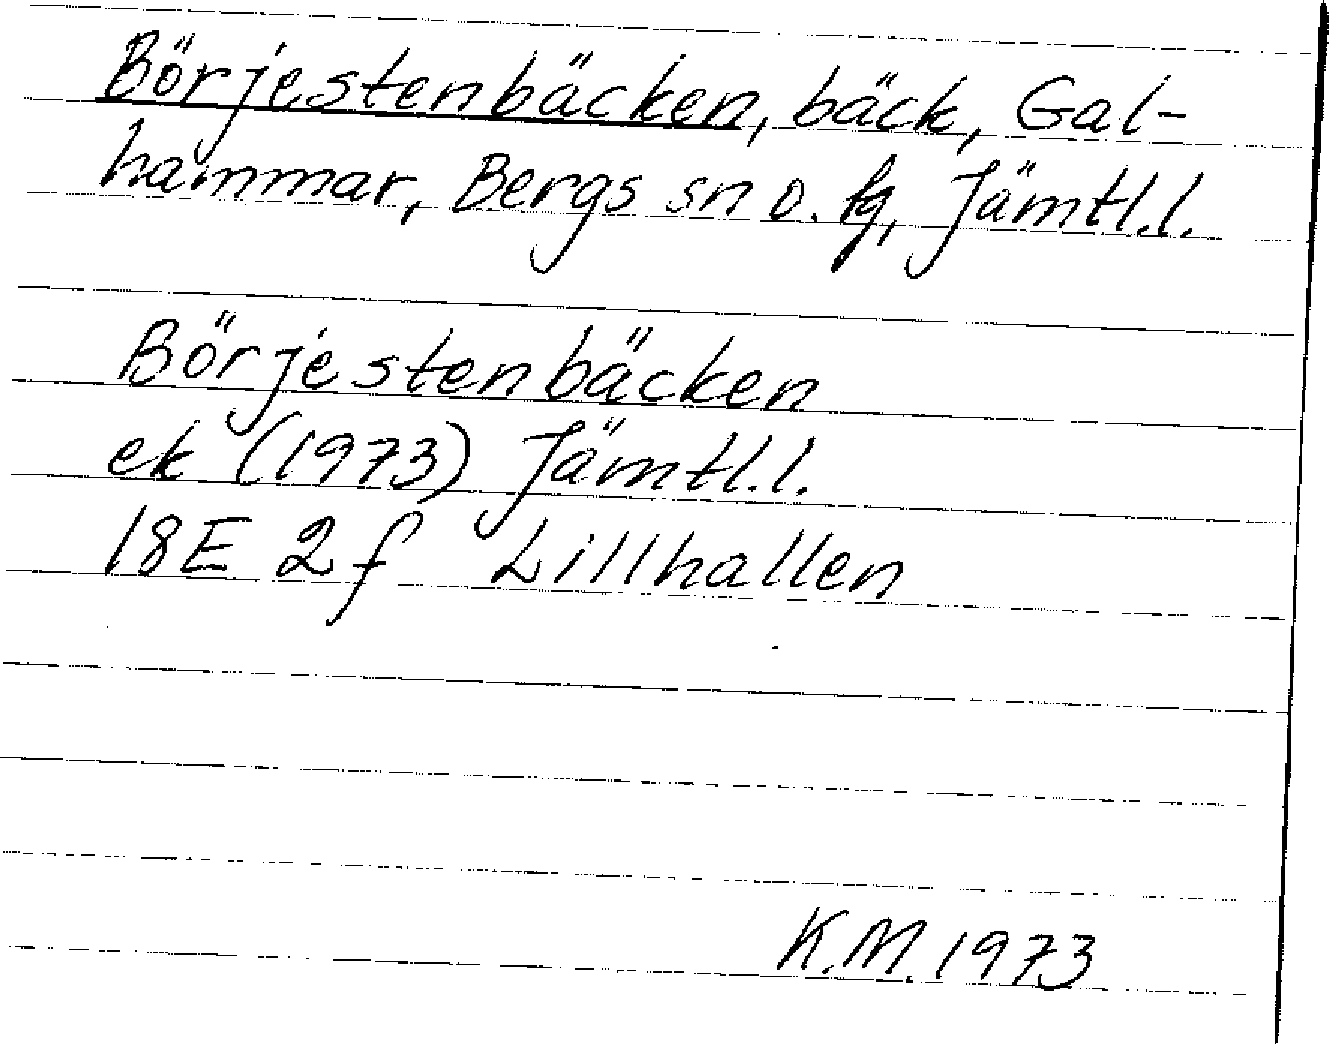 Börjestenbäcken, bäck, Gal-
hammar, Bergs sn o. tg, Jämtl.l.
Börjestenbäcken
ek (1973) Jämtl.l.
18E 2f Lillhallen
K.M. 1973